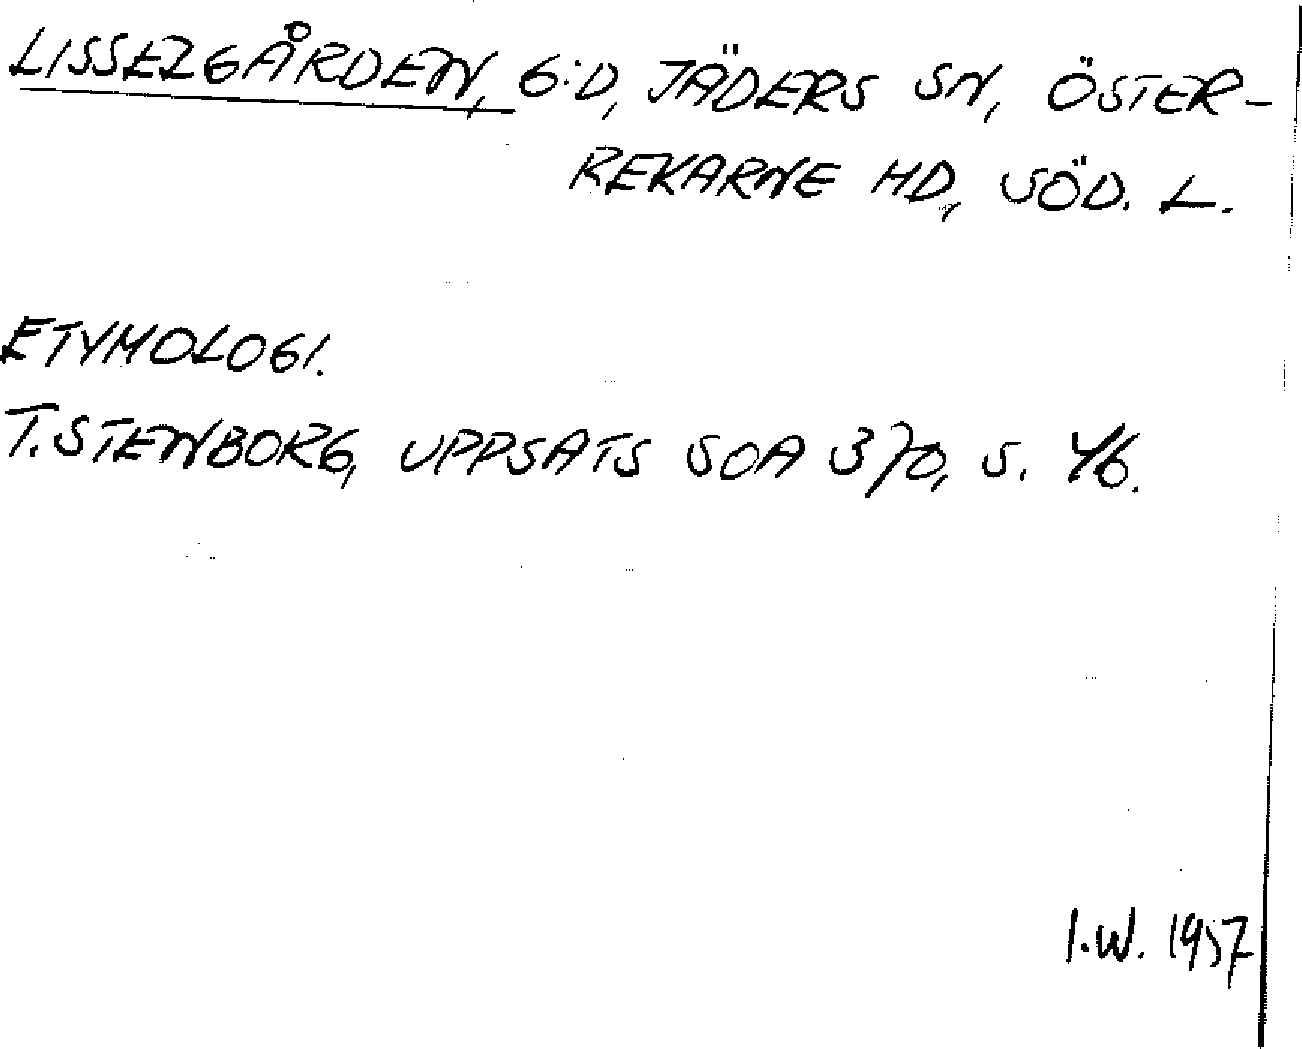 LISSELGÅRDEN, G:D, JÄDERS SN, ÖSTER-
REKARNE HD, SÖD. L.
ETYMOLOGI.
T. STENBORG, UPPSATS SOA 370, S. 46.
I.W. 1957